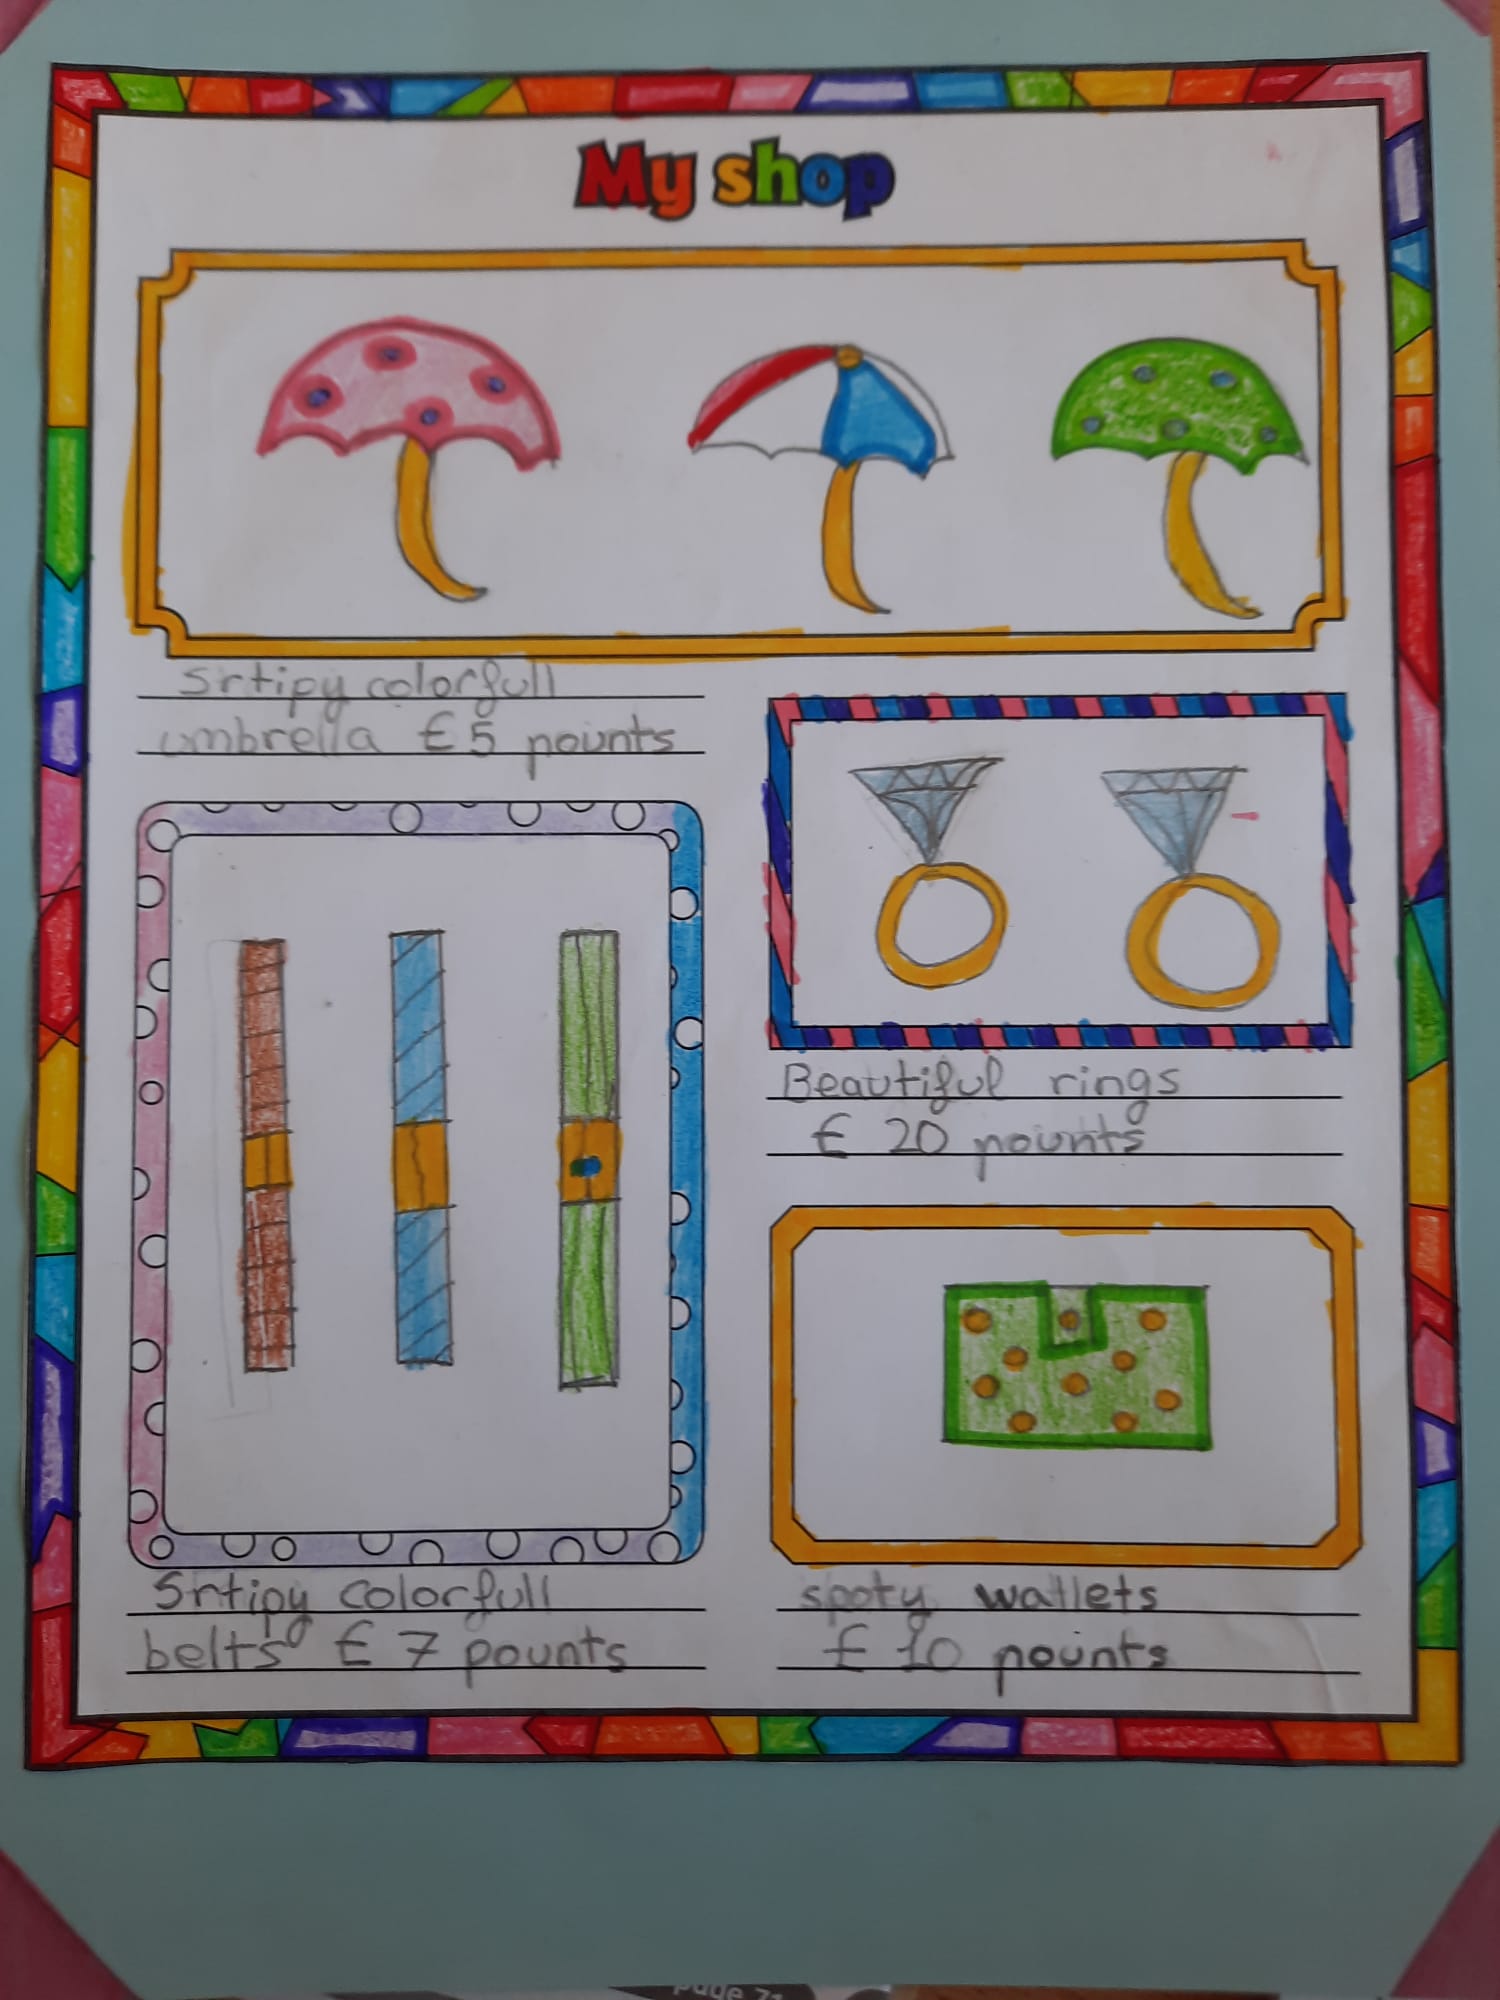 My shop
Srtipy colorfull
umbrella £5 pounts
Beautiful rings
£ 20 pounts
Srtipy colorfull
belts £ 7 pounts
spoty wallets
£ 10 pounts
page 71